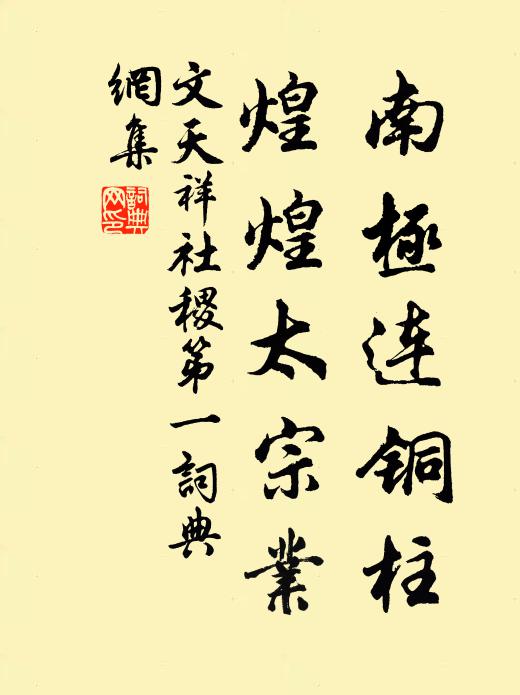 南極連銅柱
煌煌太宗業
文天祥社稷第一詞典
網集
詞典网印